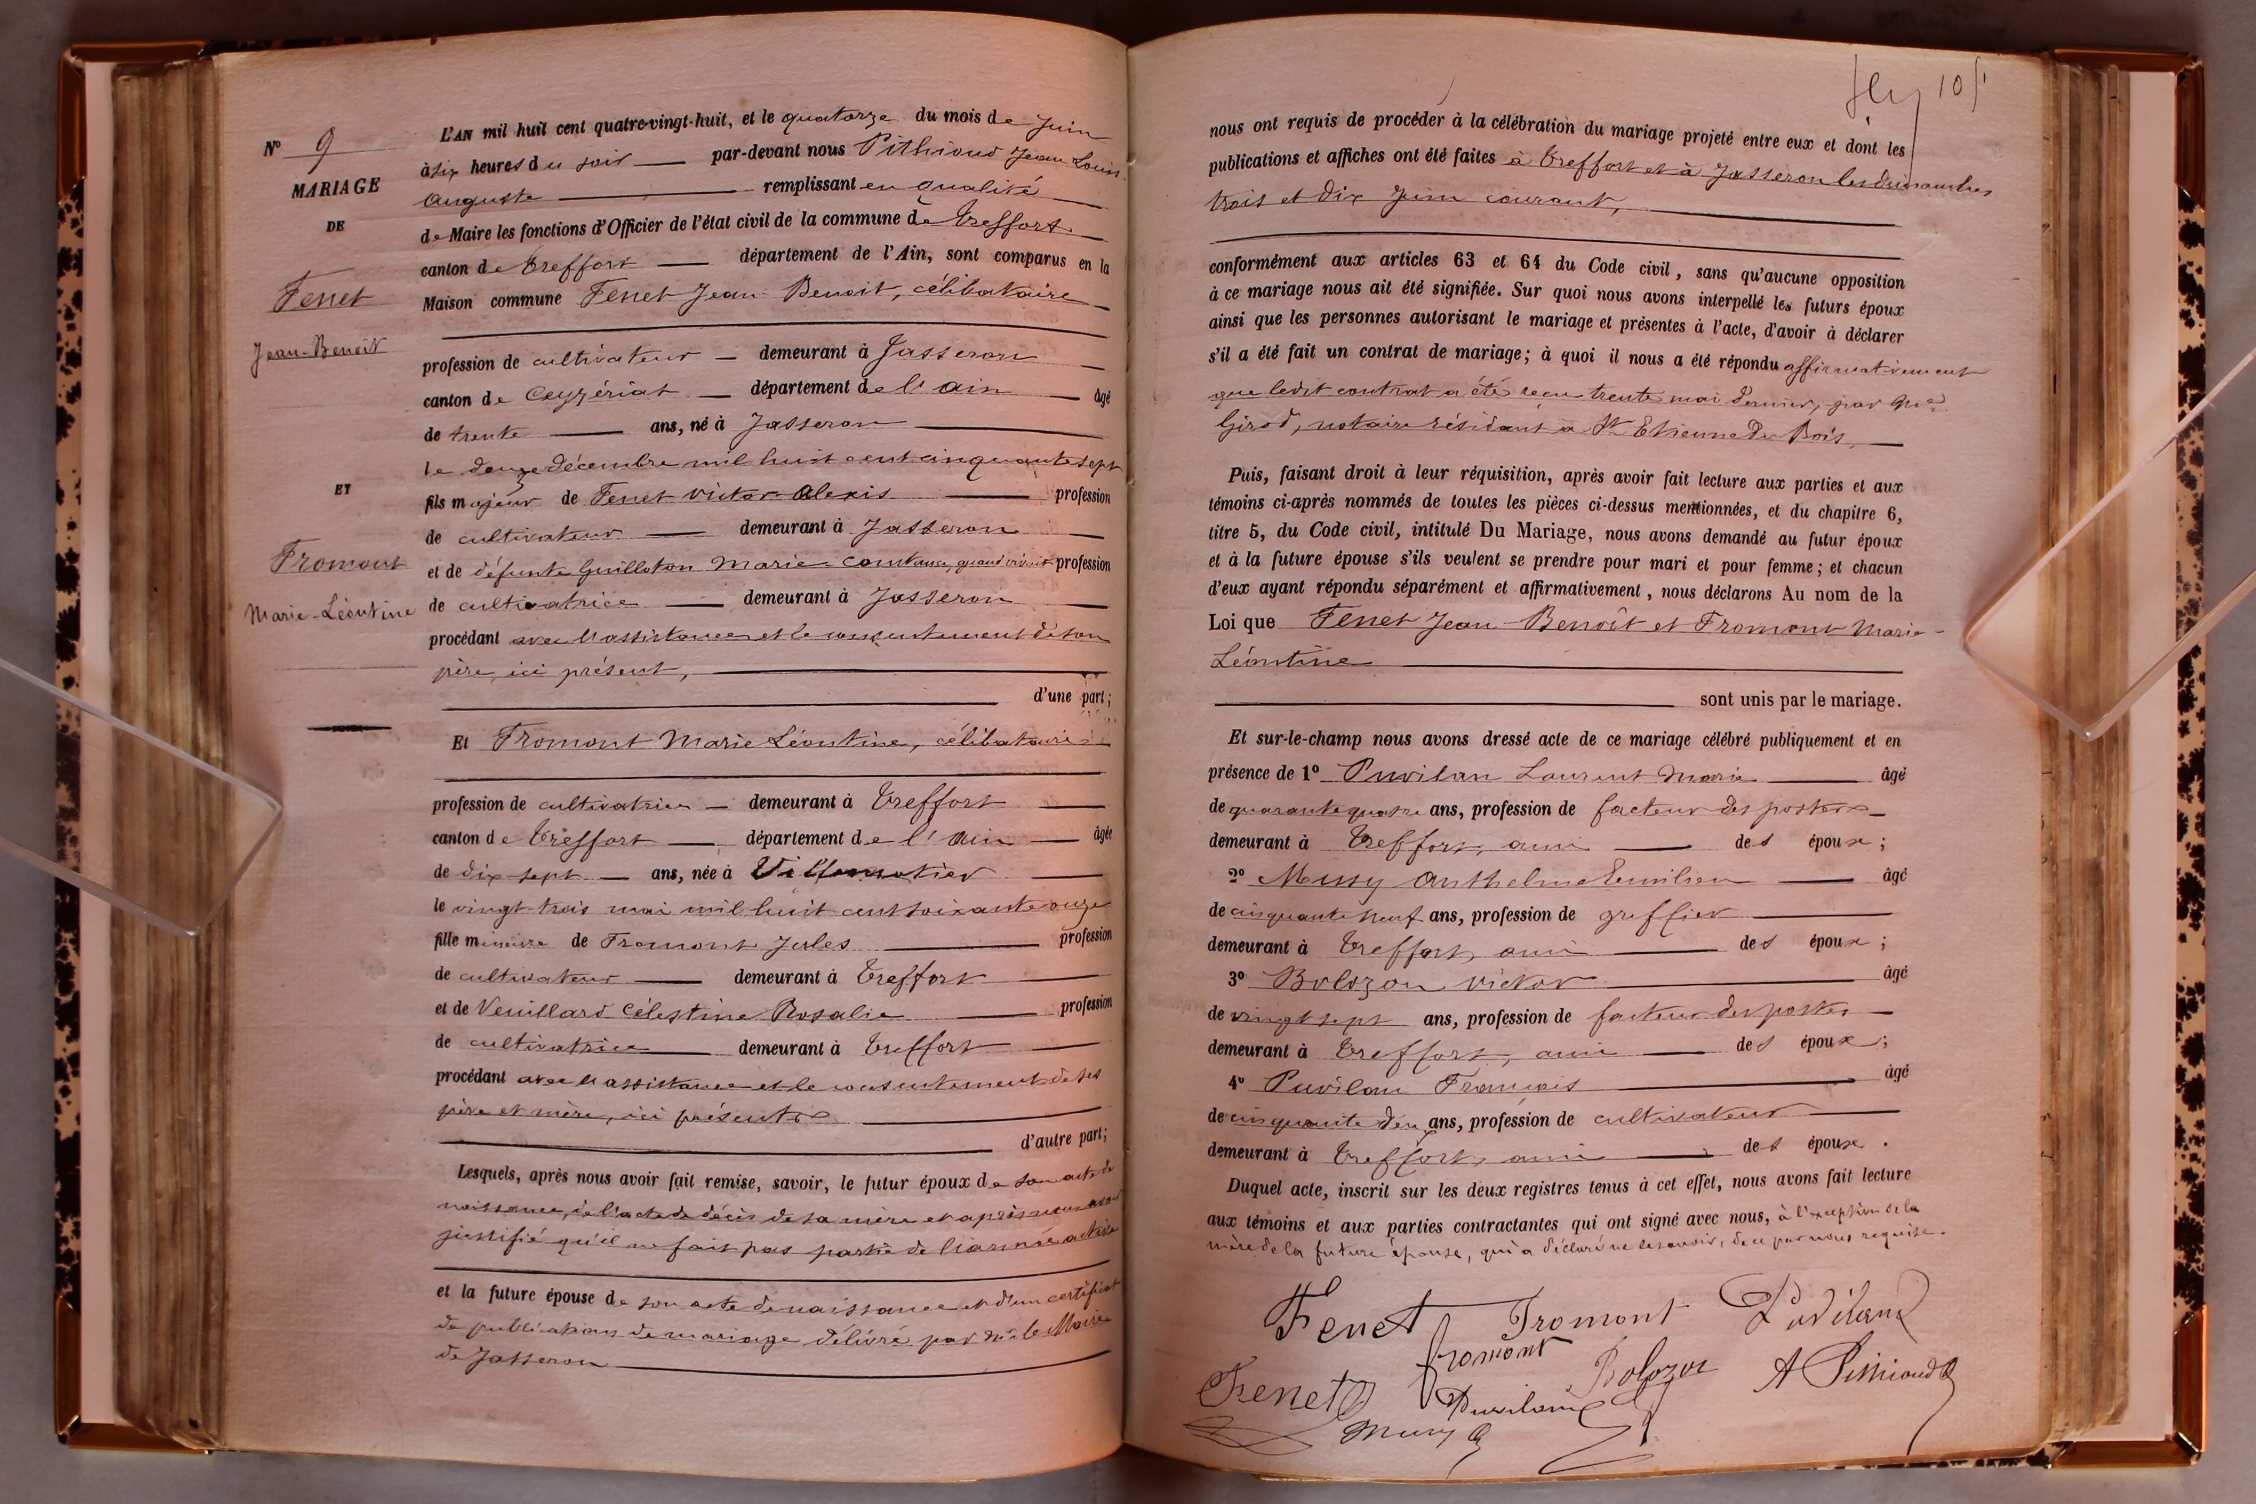 N° 9
MARIAGE
DE
Fenet
Jean-Benoît
ET
Fromont
Marie-Léontine
L'AN mil huit cent quatre-vingt-huit, et le quatorze du mois de Juin
à six heures du soir par-devant nous Pithioud Jean Louis
Auguste remplissant en qualité
de Maire les fonctions d'Officier de l'état civil de la commune de Treffort
canton de Treffort département de l'Ain, sont comparus en la
Maison commune Fenet Jean-Benoit, célibataire
profession de cultivateur demeurant à Jasseron
canton de Ceyzériat département de l'Ain âgé
de trente ans, né à Jasseron
le douze décembre mil huit cent cinquante sept
fils majeur de Fenet Victor Alexis profession
de cultivateur demeurant à Jasseron
et de défunte Guilloton Marie Constance, quand vivait profession
de cultivatrice demeurant à Jasseron
procédant avec l'assistance et le consentement de son
père, ici présent,
d'une part;
Et Fromont Marie Léontine, célibataire
profession de cultivatrice demeurant à Treffort
canton de Treffort département de l'Ain âgée
de dix sept ans, née à Villemotier
le vingt-trois mai mil huit cent soixante onze
fille mineure de Fromont Jules profession
de cultivateur demeurant à Treffort
et de Veuillard Célestine Rosalie profession
de cultivatrice demeurant à Treffort
procédant avec l'assistance et le consentement de ses
père et mère, ici présents
d'autre part;
Lesquels, après nous avoir fait remise, savoir, le futur époux de son acte de
naissance, de l'acte de décès de sa mère et après nous avoir
justifié qu'il ne fait pas partie de l'armée active
et la future épouse de son acte de naissance et d'un certificat
de publications de mariage délivré par Mr le Maire
de Jasseron
105
nous ont requis de procéder à la célébration du mariage projeté entre eux et dont les
publications et affiches ont été faites à Treffort et à Jasseron les dimanches
trois et dix Juin courant,
conformément aux articles 63 et 64 du Code civil, sans qu'aucune opposition
à ce mariage nous ait été signifiée. Sur quoi nous avons interpellé les futurs époux
ainsi que les personnes autorisant le mariage et présentes à l'acte, d'avoir à déclarer
s'il a été fait un contrat de mariage; à quoi il nous a été répondu affirmativement
que ledit contrat a été reçu trente mai dernier, par Me
Girod, notaire résidant à St Etienne du Bois,
Puis, faisant droit à leur réquisition, après avoir fait lecture aux parties et aux
témoins ci-après nommés de toutes les pièces ci-dessus mentionnées, et du chapitre 6,
titre 5, du Code civil, intitulé Du Mariage, nous avons demandé au futur époux
et à la future épouse s'ils veulent se prendre pour mari et pour femme; et chacun
d'eux ayant répondu séparément et affirmativement, nous déclarons Au nom de la
Loi que Fenet Jean-Benoît et Fromont Marie-
Léontine
sont unis par le mariage.
Et sur-le-champ nous avons dressé acte de ce mariage célébré publiquement et en
présence de 1° Puvilan Laurent Marie âgé
de quarante quatre ans, profession de facteur des postes
demeurant à Treffort, ami des époux;
2° Mussy Anthelme Emilien âgé
de cinquante neuf ans, profession de greffier
demeurant à Treffort, ami des époux;
3° Bolozon Victor âgé
de vingt sept ans, profession de facteur des postes
demeurant à Treffort, ami des époux;
4° Puvilan François âgé
de cinquante deux ans, profession de cultivateur
demeurant à Treffort, ami des époux.
Duquel acte, inscrit sur les deux registres tenus à cet effet, nous avons fait lecture
aux témoins et aux parties contractantes qui ont signé avec nous, à l'exception de la
mère de la future épouse, qui a déclaré ne le savoir, de ce par nous requise.
Fenet Fromont Puviland
Fromont Bolozon A Pithioud
Fenet Puvilan
Mussy